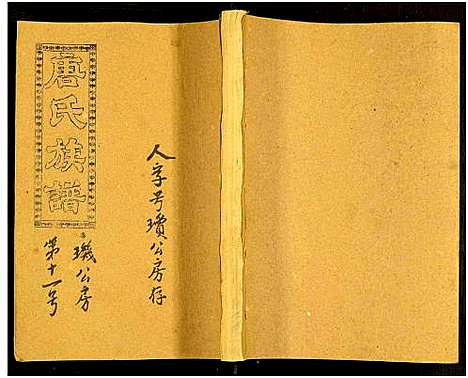 唐氏族譜
人字号瓊公房存
璣公房
第十一号